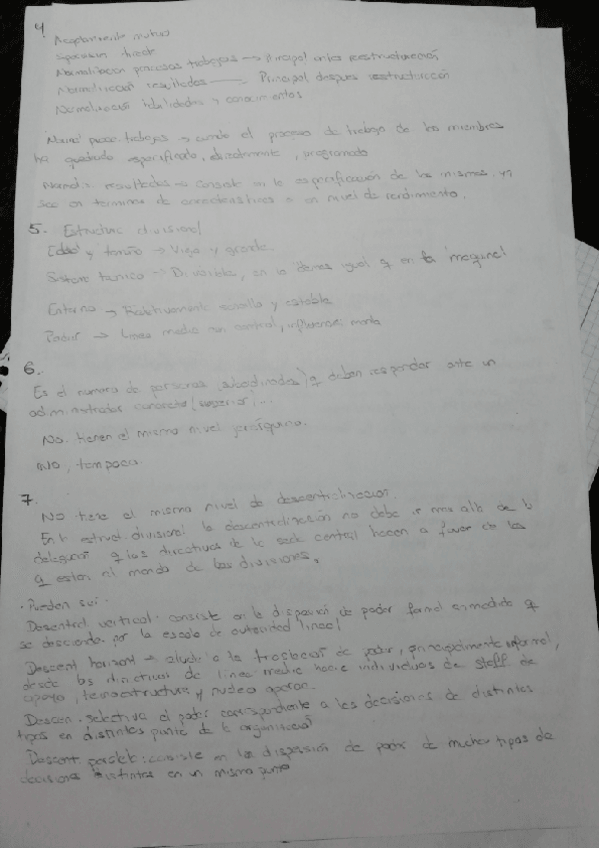 4
Adaptamiento mutuo
Supervision directa
Normalización procesos trabajos → Principal antes reestructuración
Normalización resultados — Principal despues reestructuración
Normalización habilidades y conocimientos
Normal proce. trabajos → cuando el proceso de trabajo de los miembros
ha quedado especificado, directamente, programado
Normaliz. resultados → consiste en la especificación de los mismos, ya
sea en terminos de características o en nivel de rendimiento.
5. Estructura divisional
Edad y tamaño → Vieja y grande
Sistema tecnico → Divisible, en lo demas igual q en la maquinal
Entorno → Relativamente sencillo y estable
Poder → Linea media con control, influencia moda
6.
Es el numero de personas (subordinados) q deben responder ante un
administrador concreto (superior, ...
No tienen el mismo nivel jerárquico.
No, tampoco.
7.
No tiene el mismo nivel de descentralización.
En la estruct. divisional la descentralización no debe ir mas alla de la
delegación q los directivos de la sede central hacen a favor de los
q estan al mando de las divisiones.
· Pueden ser:
Descentral. vertical: consiste en la dispersión de poder formal en medida q
se desciende por la escala de autoridad lineal
Descent horizont → alude a la traslacion de poder, principalmente informal,
desde los directivos de linea media hacia individuos de staff de
apoyo, tecnoestructura y nucleo operac.
Descen. selectiva el poder correspondiente a las decisiones de distintos
tipos en distintos puntos de la organización
Descent. paralela: consiste en la dispersión de poder de muchos tipos de
decisiones distintas en un mismo punto